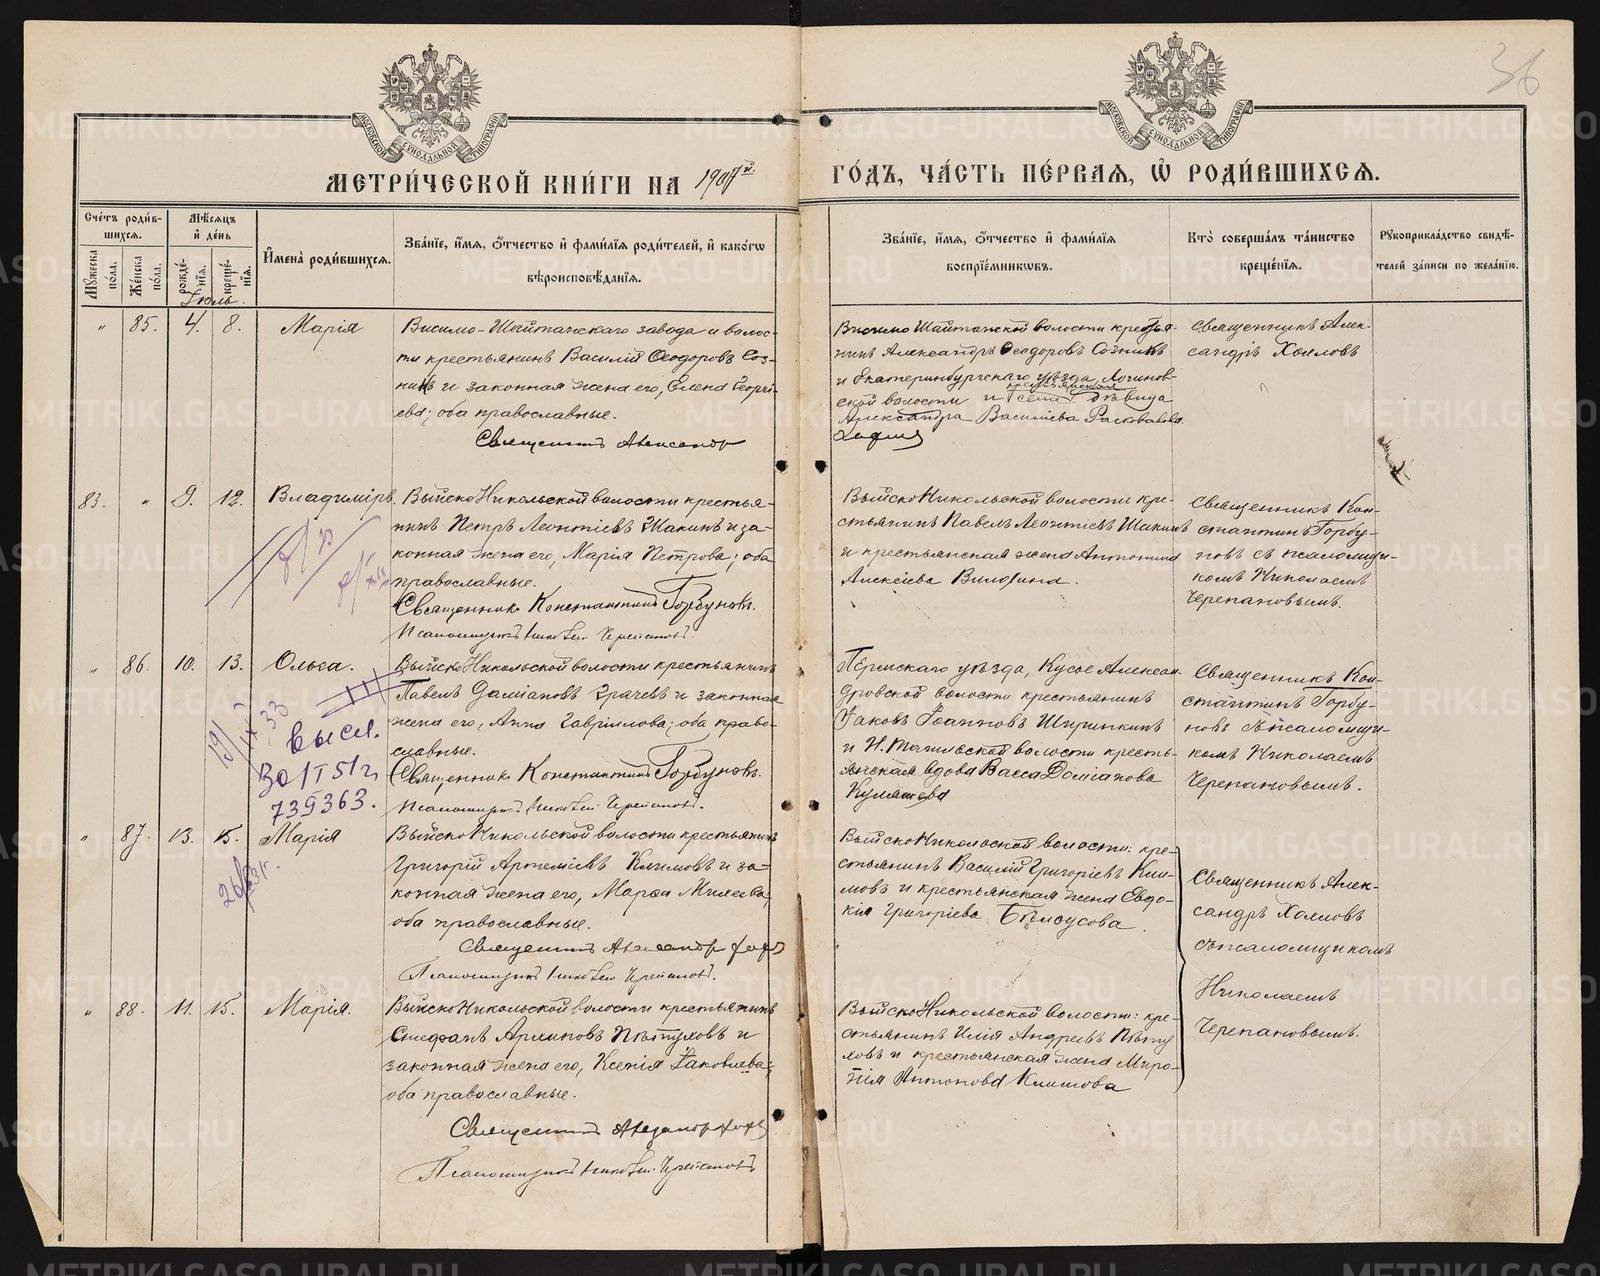 36
МЕТРИ́ЧЕСКОЙ КНИ́ГИ НА 1907й. ГО́ДЪ, ЧА́СТЬ ПЕ́РВАѦ, Ѿ РОДИ́ВШИХСѦ.
Сче́тъ роди́в-
шихсѧ.
Мꙋ́жеска по́ла.
Же́нска по́ла.
Мѣ́сѧцъ и҆ де́нь
рожде́-нїѧ.
креще́-нїѧ.
И҆мена̀ роди́вшихсѧ.
Зва́нїе, и҆́мѧ, ѻ҆́тчество и҆ фами́лїѧ роди́телей, и҆ како́гѡ
вѣроисповѣ́данїѧ.
Зва́нїе, и҆́мѧ, ѻ҆́тчество и҆ фами́лїѧ
воспрїе́мникѡвъ.
Кто̀ соверша́лъ та́инство
креще́нїѧ.
Рꙋкоприкла́дство свидѣ́-
телей за́писи по жела́нїю.
Іюль.
" 85. 4. 8. Марія
Висимо-Шайтанскаго завода и волос-
ти крестьянинъ Василій Ѳеодоровъ Соз-
никъ и законная жена его, Елена Георгі-
ева; оба православные.
Священникъ Александр
Висимо Шайтанской волости кресть-
янинъ Александръ Ѳеодоровъ Созникъ
и Екатеринбургскаго уѣзда, Логинов-
ской волости и крестьянская дѣвица
Александра Васильева
Священникъ Алек-
сандръ Холловъ
83. " 9. 12. Владиміръ.
Выйско Никольской волости крестья-
нинъ Петръ Леонтіевъ Шакинъ и за-
конная жена его, Марія Петрова; оба
православные.
Священникъ Константинъ Горбуновъ.
Псаломщикъ Николай Черепановъ.
Выйско Никольской волости кре-
стьянинъ Павелъ Леонтіевъ Шакинъ
и крестьянская жена Антонина
Алексіева
Священникъ Кон-
стантинъ Горбу-
новъ съ псаломщи-
комъ Николаемъ
Черепановымъ.
" 86. 10. 13. Ольга.
Выйско Никольской волости крестьянинъ
Павелъ Даміановъ Грачевъ и законная
жена его, Анна Гавриилова; оба право-
славные.
Священникъ Константинъ Горбуновъ.
Псаломщикъ Николай Черепановъ.
высл.
30/I 51 г.
739363.
Пермскаго уѣзда, Кусье Александ-
дровской волости крестьянинъ
Іаковъ Іоанновъ Ширинкинъ
и Н. Тагильской волости кресть-
янская вдова Васса Даміанова
Священникъ Кон-
стантинъ Горбу-
новъ съ псаломщи-
комъ Николаемъ
Черепановымъ.
" 87. 13. 15. Марія
Выйско Никольской волости крестьянинъ
Григорій Артеміевъ Климовъ и за-
конная жена его, Марѳа
оба православные.
Священникъ Александр
Псаломщикъ Николай Черепановъ.
Выйско Никольской волости: кре-
стьянинъ Василій Григоріевъ Кли-
мовъ и крестьянская жена Евдо-
кія Григоріева Бѣлоусова.
Священникъ Алек-
сандръ Холловъ
съ псаломщикомъ
Николаемъ
Черепановымъ.
" 88. 11. 15. Марія.
Выйско Никольской волости крестьянинъ
Стефанъ Пѣтуховъ и
законная жена его, Ксенія Іаковлева;
оба православные.
Священникъ
Псаломщикъ Николай Черепановъ
Выйско Никольской волости: кре-
стьянинъ Илія Андреевъ Пѣту-
ховъ и крестьянская жена Миро-
нія Антонова Климова
METRIKI.GASO-URAL.RU